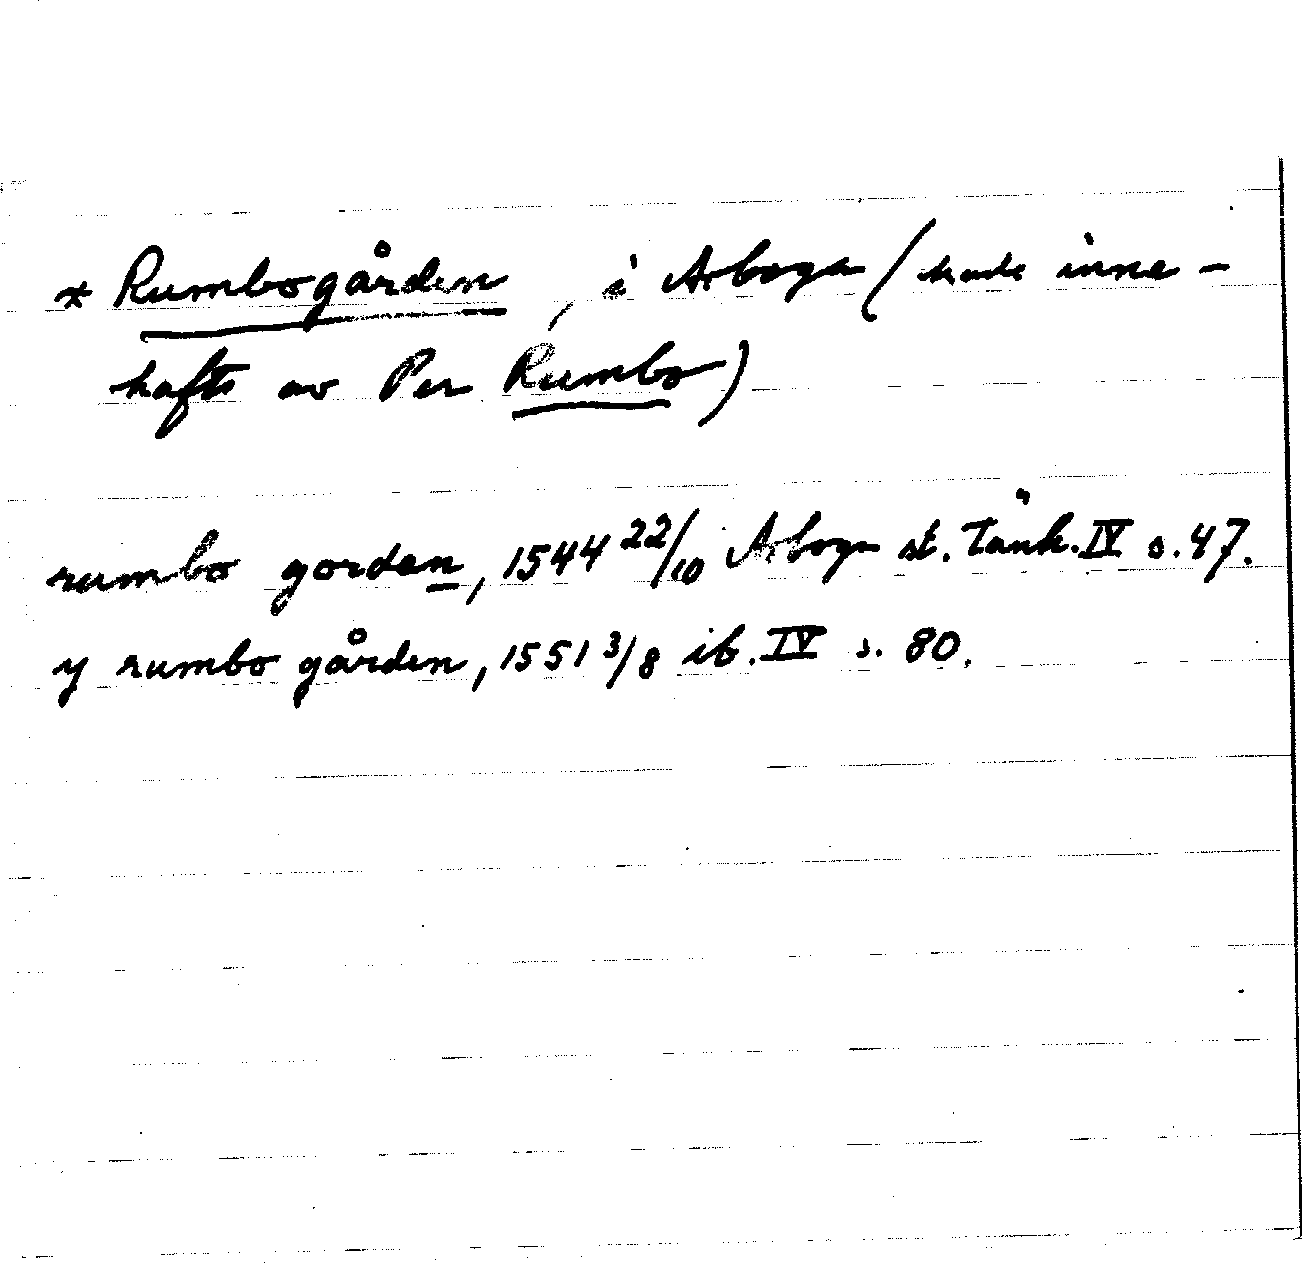 * Rumbogården, i Arboga (hade inne-
hafts av Per Rumbo)
rumbo gordan, 1544 22/10 Arboga st. Tänk. IV s. 47.
y rumbo gården, 1551 3/8 ib. IV s. 80.